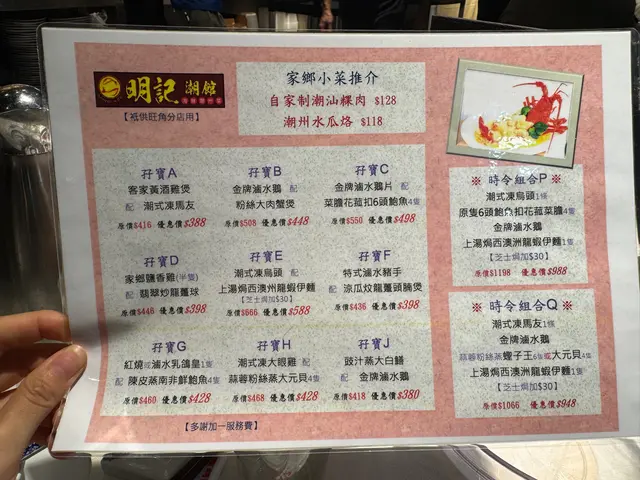 明記 潮館
【祗供旺角分店用】
家鄉小菜推介
自家制潮汕粿肉 $128
潮州水瓜烙 $118
孖寶A
客家黃酒雞煲
配 潮式凍馬友
原價$416 優惠價$388
孖寶B
金牌滷水鵝 配
粉絲大肉蟹煲
原價$508 優惠價$448
孖寶C
金牌滷水鵝片 配
菜膽花菇扣6頭鮑魚4隻
原價$550 優惠價$498
孖寶D
家鄉鹽香雞(半隻)
配 翡翠炒龍躉球
原價$446 優惠價$398
孖寶E
潮式凍烏頭 配
上湯焗西澳州龍蝦伊麵
【芝士焗加$30】
原價$666 優惠價$588
孖寶F
特式滷水豬手
配 涼瓜炆龍躉頭腩煲
原價$436 優惠價$398
孖寶G
紅燒或滷水乳鴿皇1隻
配 陳皮蒸南非鮮鮑魚4隻
原價$460 優惠價$428
孖寶H
潮式凍大眼雞 配
蒜蓉粉絲蒸大元貝4隻
原價$468 優惠價$428
孖寶J
豉汁蒸大白鱔
配 金牌滷水鵝
原價$418 優惠價$380
【多謝加一服務費】
※ 時令組合P ※
潮式凍烏頭1條
原隻6頭鮑魚扣花菇菜膽4隻
金牌滷水鵝
上湯焗西澳洲龍蝦伊麵1隻
【芝士焗加$30】
原價$1198 優惠價$988
※ 時令組合Q ※
潮式凍馬友1條
金牌滷水鵝
蒜蓉粉絲蒸螺子王6隻或大元貝4隻
上湯焗西澳洲龍蝦伊麵1隻
【芝士焗加$30】
原價$1066 優惠價$948